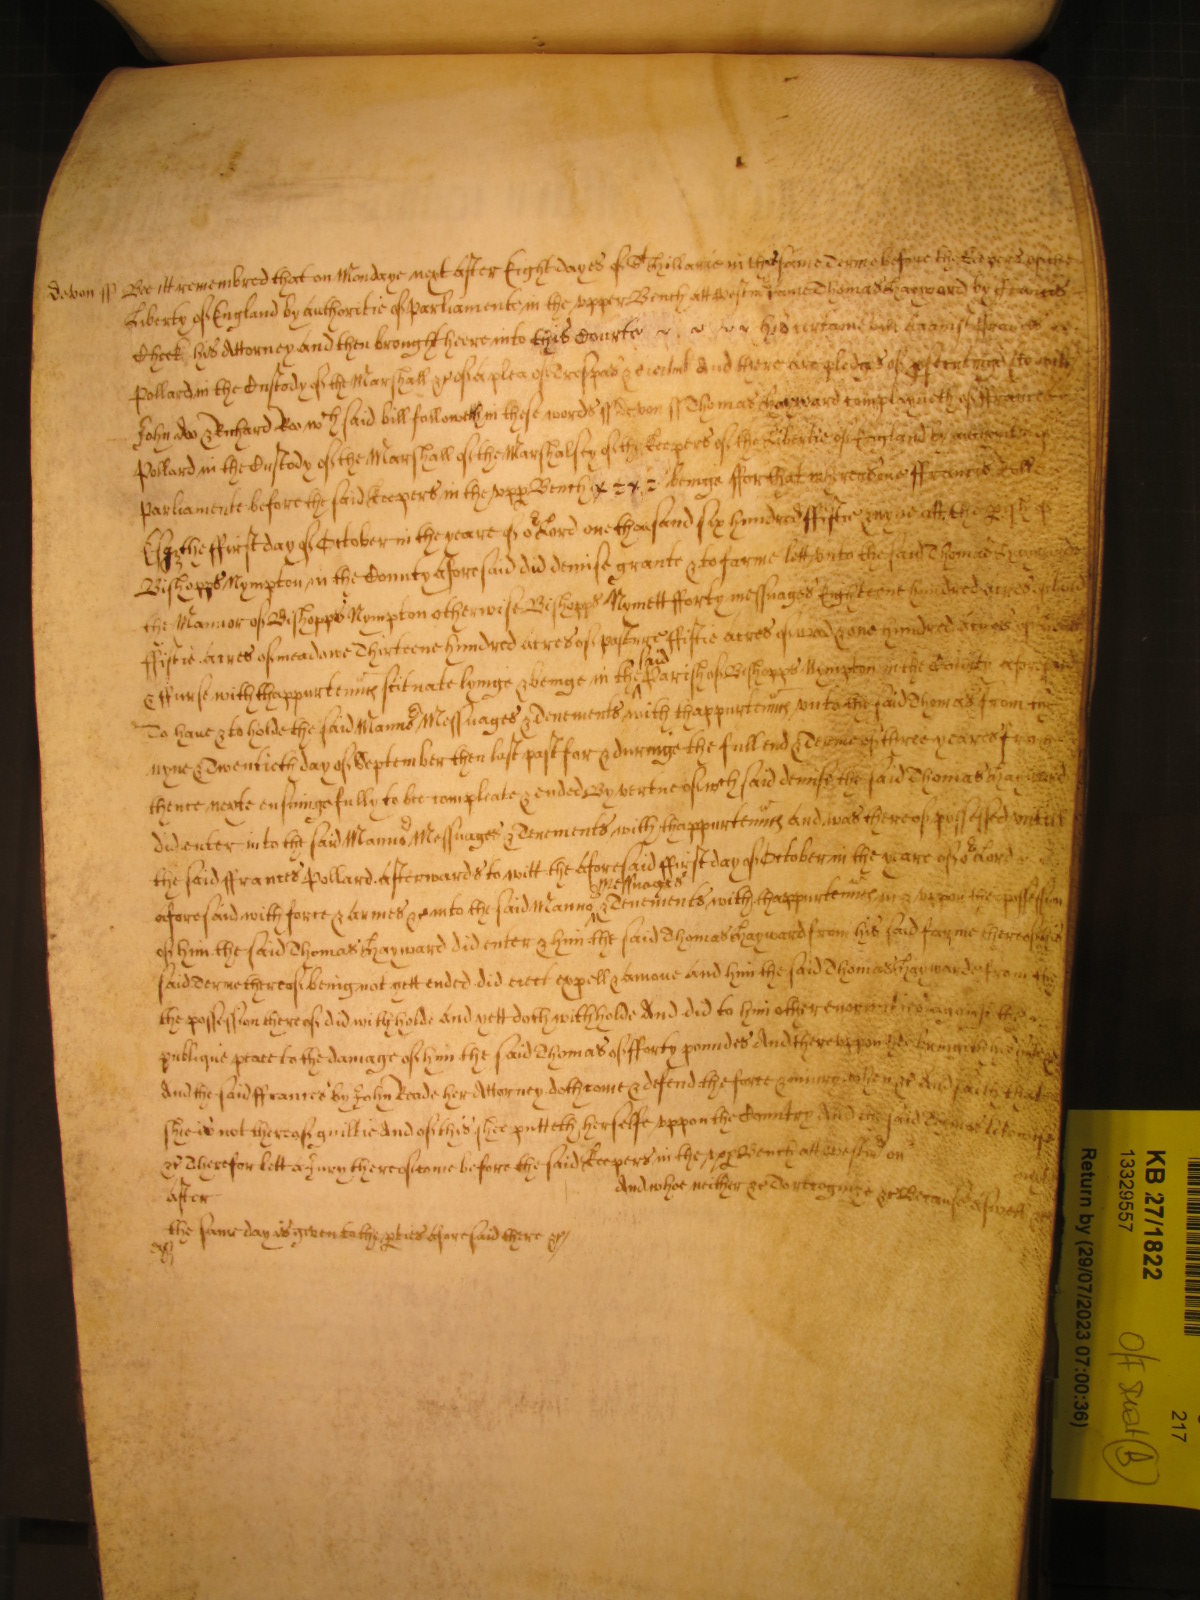 Devon ss Bee itt remembred that on Mondaye next after Eight dayes of St Hillarie in this same Terme before the keepers of the
Liberty of England by authoritie of Parliamente in the upper Bench att Westmr came Thomas Hayward by Francis
Cheek his Attorney And then brought heere into this Courte his certaine bill against Frances
Pollard in the Custody of the Marshall &c of a plea of Trespas & eiectmt And there are pledges of prosecuting to witt
John Doo & Richard Roo wch said bill followeth in these words ss Devon ss Thomas Hayward complayneth of Frances
Pollard in the Custody of the Marshall of the Marshalsey of the keepers of the Libertie of England by authoritie of
Parliamente before the said keepers in the upp Bench beinge ffor that whereas one ffrancis
Esqr the ffirst day of October in the yeare of or Lord one thousand six hundred ffiftie nyne att the pish of
Bishopps Nympton in the County aforesaid did demise grante & to farme lett unto the said Thomas Haywarde
the Mannor of Bishopps Nympton otherwise Bishopps Nymett fforty messuages Eighteene hundred acres of land
ffiftie acres of meadowe Thirteene hundred acres of pasture ffiftie acres of wood & one hundred acres of
& ffurse with thappurtenncs scituate lyinge & beinge in the said Parish of Bishopps Nympton in the County aforesaid
To have & to holde the said Mannor Messuages & Tenements with thappurtenncs unto the said Thomas from the
nyne & Twentieth day of September then last past for & duringe the full end & Terme of three yeares from
thence nexte ensuinge fully to bee compleate & ended By vertue of wch said demise the said Thomas Hayward
did enter into the said Mannor Messuages & Tenements with thappurtenncs And was thereof possessed untill
the said ffrances Pollard afterwards to witt the aforesaid ffirst day of October in the yeare of or Lord
aforesaid with force & armes &c into the said Mannor Messuages & Tenements with thappurtenncs in & uppon the possession
of him the said Thomas Hayward did enter & him the said Thomas Hayward from his said farme thereof his
said Terme thereof being not yett ended did eiect expell & amove And him the said Thomas Haywarde from the
the possession thereof did withholde And yett doth withholde And did to him other enormities against the
publique peace to the damage of him the said Thomas of fforty poundes And thereuppon hee bringeth his suite &c
And the said ffrances by John Reade her Attorney doth come & defend the force & iniury when &c And saith that
shee is not thereof guiltie And of this shee putteth herselfe uppon the Country And the said Thomas likewise
&c Therefor lett a Jury thereof come before the said keepers in the upp Bench att Westmr on next
after And whoe neither &c To recognize &c Because aswell &c
the same day is given to the pties aforesaid there &c
KB 27/1822
13329557
Return by (29/07/2023 07:00:36)
217